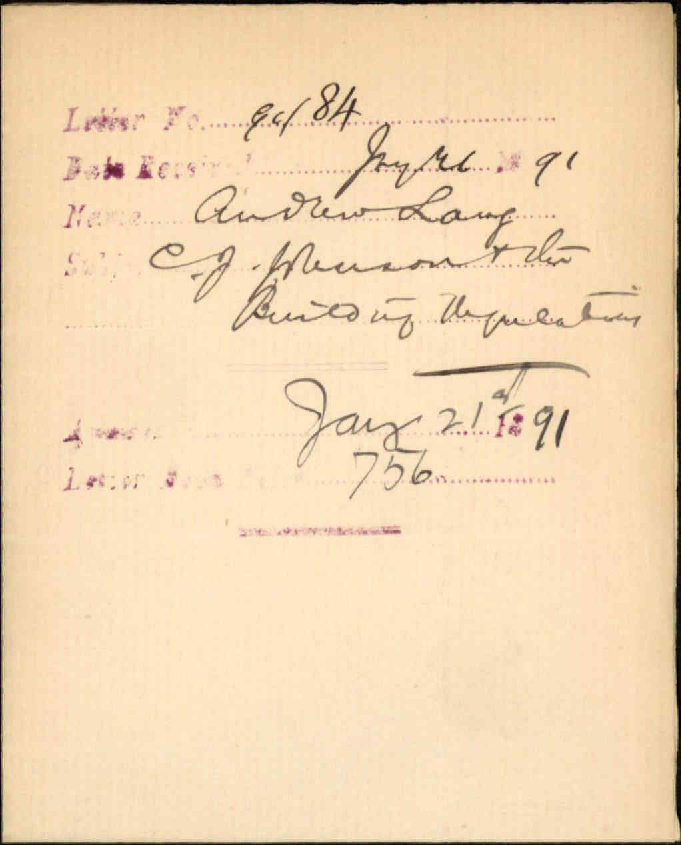 Letter No. 90/84
Date Received Jany 21 1891
Name Andrew Lang
C. J. Johnson
Building Regulations
Jany 21st 1891
Letter Book 756